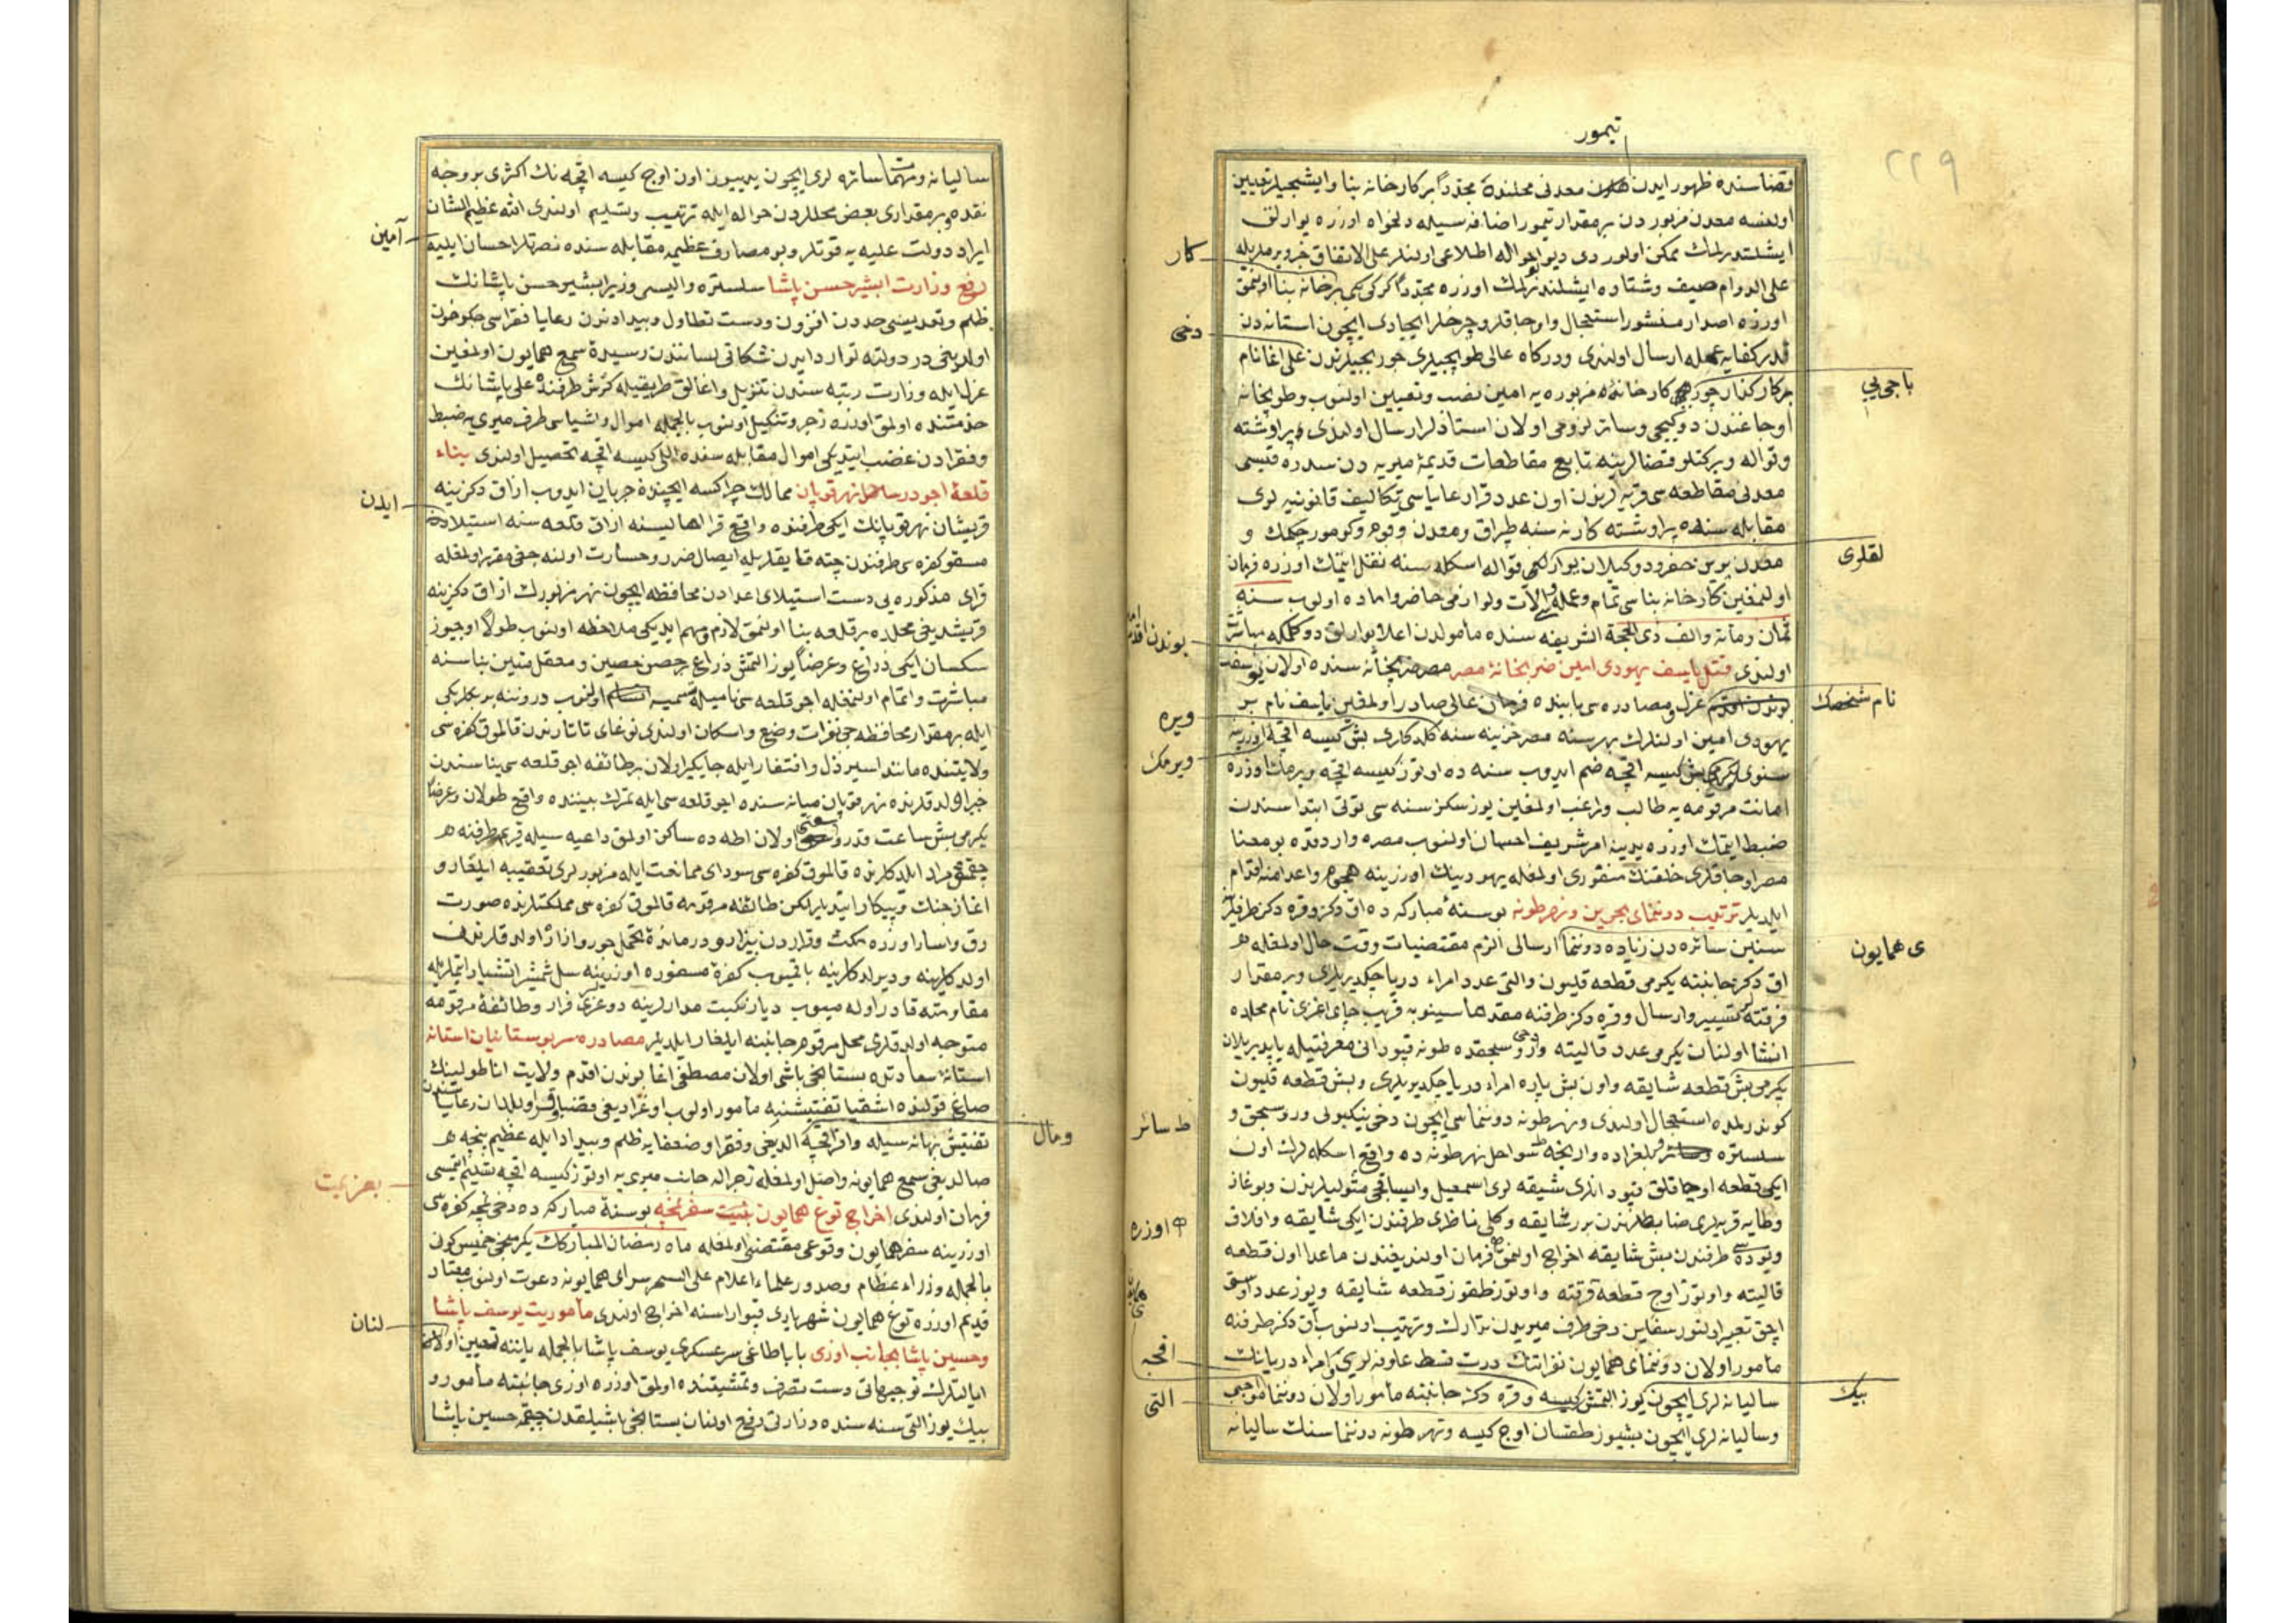 تيمور
٢٢٩
قضاسنده ظهور ايدن معدنی محلنده مجدداً بر كارخانه بنا وايشجيلر تعيين
اولنسه معدن مزبوردن بر مقدار تيمور اضافه سيله دلخواه اوزره يوارلق
ايشلتدرلمك ممكن اولور دی ديو اطلاعی اولنلر علی الاتفاق خبر ويرملريله
كار
علی الدوام صيف وشتاده ايشلندرلمك اوزره مجدداً كركی كبی برخانه بنا اولنمق
اوزره اصدار منشور استعجال واوجاقلر وچرخلر ايجادی ايچون استانه دن
دخی
قدر كفايه عمله ارسال اولندی ودركاه عالی طوپجيلری خوربجيلرندن علی اغا نام
باجی يی
بر كاركذار كارخانهٔ مزبوره يه امين نصب وتعيين اولنوب وطوپخانه
اوجاغندن دوكيجی وسائر لزومی اولان استاذلر ارسال اولندی وپراوشته
وقواله وبركتلو قضالرينه تابع مقاطعات قديمهٔ ميريه دن سدره قپسی
معدنی مقاطعه سی قريه لرندن اون عدد قرا رعاياسی تكاليف قانونيه لری
مقابله سنده پراوشته كارنه سنه طپراق ومعدن وكومور چكمك و
لقلری
معدن يرين حفر ودوكيلان يوارلكی قواله اسكله سنه نقل ايتمك اوزره فرمان
اولنمغين كارخانه بناسی تمام وعمله وآلات ولوازمی حاضر واماده اولوب سنه
ثمان ومائة والف ذی الحجة الشريفه سنده مأمولدن اعلا يوارلق دوكلمكه مباشرت
بوندن اقدم
اولندی قتل ياسف يهودی امين ضربخانهٔ مصر مصر ضربخانه سنده اولان
نام شخصك
عزل ومصادره سی بابنده فرمان عالی صادر اولمغين ياسف نام بر
ويره
يهودی امين اولنلرك بهر سنه مصر خزينه سنه كلدكاری بش كيسه اقچه اوزرينه
ويرمك
سنوی يكرمی بش كيسه اقچه ضم ايدوب سنه ده اوتوز كيسه اقچه ويرمك اوزره
امانت مرقومه يه طالب وراغب اولمغين يوز سكز سنه سی توتی ابتداسندن
ضبط ايتمك اوزره يدينه امر شريف احسان اولنوب مصره واردقده بو معنا
مصر اوجاقلری خلقنك منفوری اولمغله يهودينك اوزرينه هجوم واعدامنه اقدام
ايلديلر ترتيب دوننمای بحرين ونهر طونه بو سنهٔ مباركه ده اق دكز وقره دكز طرفلرينه
سنين سائره دن زياده دوننما ارسالی الزم مقتضيات وقت حال اولمغله
ی همايون
اق دكز جانبنه يكرمی قطعه قليون والتی عدد امراء دريا چكديريلری وبر مقدار
فرقته تسيير وارسال وقره دكز طرفنه مقدما سينوبه قريب چای اغزی نام محلده
انشا اولنان يكرمی عدد قاليته وروسجقده طونه قپودانی معرفتيله ياپديريلان
يكرمی بش قطعه شايقه واون بش پاره امراء دريا چكديريلری وبش قطعه قليون
كوندرلمده استعجال اولندی ونهر طونه دوننماسی ايچون دخی نيكبولی وروسجق و
ط سائر
سلستره وبلغراده وارنجه سواحل نهر طونه ده واقع اسكله لرك اون
ايكی قطعه اوچاقلق قپودانلری شيقه لری اسمعيل وايساقچی متوليلرندن وبوغاز
وطايه قريه لری ضابطلرندن برر شايقه وكلی ناظری طرفندن ايكی شايقه وافلاق
اوزره
ويوده سی طرفندن بش شايقه اخراج اولنمق فرمان اولنديغندن ماعدا اون قطعه
قاليته واوتوز اوچ قطعه فرقته واوتوز طقوز قطعه شايقه ويوز عدد
اچق تعبير اولنور سفاين دخی طرف ميريدن تدارك وترتيب اولنوب اق دكز طرفنه
مأمور اولان دوننمای همايون نفراتنك درت قسط علوفه لری وامراء دريانك
اقچه
بيك
ساليانه لری ايچون يوز التمش كيسه وقره دكز جانبنه مأمور اولان دوننما مواجبی
التی
وساليانه لری ايچون بشيوز طقسان اوچ كيسه ونهر طونه دوننماسنك ساليانه
ساليانه ومهمات سائره لری ايچون يديیوز اون اوچ كيسه اقچه نك اكثری بر وجه
نقد وبر مقداری بعض محللردن حواله ايله ترتيب وتسليم اولندی الله عظيم الشان
آمين
ايراد دولت عليه يه قوتلر وبو مصارف عظيمه مقابله سنده نصرتلر احسان ايليه
رفع وزارت ابشير حسن پاشا سلستره واليسی وزير ابشير حسن پاشانك
ظلم وتعديسی حددن افزون ودست تطاول وبيدادندن رعايا فقراسی جكرخون
اولديغی در دولته توارد ايدن شكاتی لسانندن رسيدهٔ سمع همايون اولمغين
عزل ايله وزارت رتبه سندن تنزيل واغالق طريقيله كرش طرفنده علی پاشانك
خدمتنده اولمق اوزره زجر وتنكيل اولنوب بالجمله اموال واشياسی طرف ميری يه ضبط
وفقرادن غصب ايتديكی اموال مقابله سنده اللی كيسه اقچه تحصيل اولندی بناء
قلعهٔ اجو در ساحل نهر قوبان ممالك چراكسه ايچنده جريان ايدوب ازاق دكزينه
ايدن
قريشان نهر قوبانك ايكی طرفنده واقع قرا اهاليسنه ازاق قلعه سنه استيلا
مسقو كفره سی طرفندن چته قايقلريله ايصال ضرر وخسارت اولنه جغی مقرر اولمغله
قرای مذكوره يی دست استيلای اعدادن محافظه ايچون نهر مزبورك ازاق دكزينه
قريشديغی محلده بر قلعه بنا اولنمق لازم ومهم ايديكی ملاحظه اولنوب طولاً اوچيوز
سكسان ايكی ذراع وعرضاً يوز التمش ذراع بر حصن حصين ومعقل متين بناسنه
مباشرت واتمام اولنمغله اجو قلعه سی ناميله تسميه اولنوب دروننه بر بكلربكی
ايله بر مقدار محافظه جی نفرات وضع واسكان اولندی نوغای تاتارندن قالموق كفره سی
ولايتنده مانند اسير ذل وافتقار ايله جايكير اولان بر طائفه اجو قلعه سی بناسندن
خبردار اولدقلرنده نهر قوبان ميانه سنده اجو قلعه سی ايله تمرك بيننده واقع طولان وعرضاً
يكرمی بش ساعت قدر اولان اطه ده ساكن اولمق داعيه سيله قريم طرفنه
چقمق مراد ايلدكلرنده قالموق كفره سی سودای ممانعت ايله مزبورلری تعقيبه ايلغار و
اغاز جنك وپيكار ايتديلر لكن طائفه مرقومه قالموق كفره سی مملكتلرنده صورت
رق واسار اوزره مكث وقراردن بيزار ودرماندهٔ تحمل جور وازار اولدقلرندن
اولدكلرينه وديولدكلرينه باقميوب كفرهٔ مسفوره اوزرينه سل شمشير انتشار ايتملريله
مقاومته قادر اوله ميوب ديار نكبت مدارلرينه دوغری فرار وطائفهٔ مرقومه
متوجه اولدقلری محل مرقوم جانبنه ايلغار ايلديلر مصادره سربوستانيان استانه
استانهٔ سعادتده بستانجی باشی اولان مصطفی اغا بوندن اقدم ولايت اناطولينك
صاغ قولنده اشقيا تفتيشنه مأمور اولوب اوغراديغی قضالرده اولان رعايا
ومال
تفتيش بهانه سيله وافر اقچه الديغی وفقرا وضعفايه ظلم وبيداد ايله عظيم پنجه
صالديغی سمع همايونه واصل اولمغله زجراً له جانب ميری يه اوتوز كيسه اقچه تسليم ايتمسی
بعزيمت
فرمان اولندی اخراج توغ همايون بنيت سفر نمچه بو سنهٔ مباركه ده دخی نمچه كفره سی
اوزرينه سفر همايون وقوعی مقتضی اولمغله ماه رمضان المباركك يكرمنجی خميس كونی
بالجمله وزراء عظام وصدور علماء اعلام علی السحر سرای همايونه دعوت اولنوب معتاد
قديم اوزره توغ همايون شهرياری قپو اراسنه اخراج اولندی مأموريت يوسف پاشا
لنان
وحسين پاشا بجانب اوزی باباطاغی سرعسكری يوسف پاشا بالجمله ياننه تعيين
ايالتلرك توجيهاتی دست تصرف وتمشيتنده اولمق اوزره اوزی جانبنه مأمور و
بيك يوز التی سنه سنده وزارتی رفع اولنان بستانجی باشيلقدن چقمه حسين پاشا